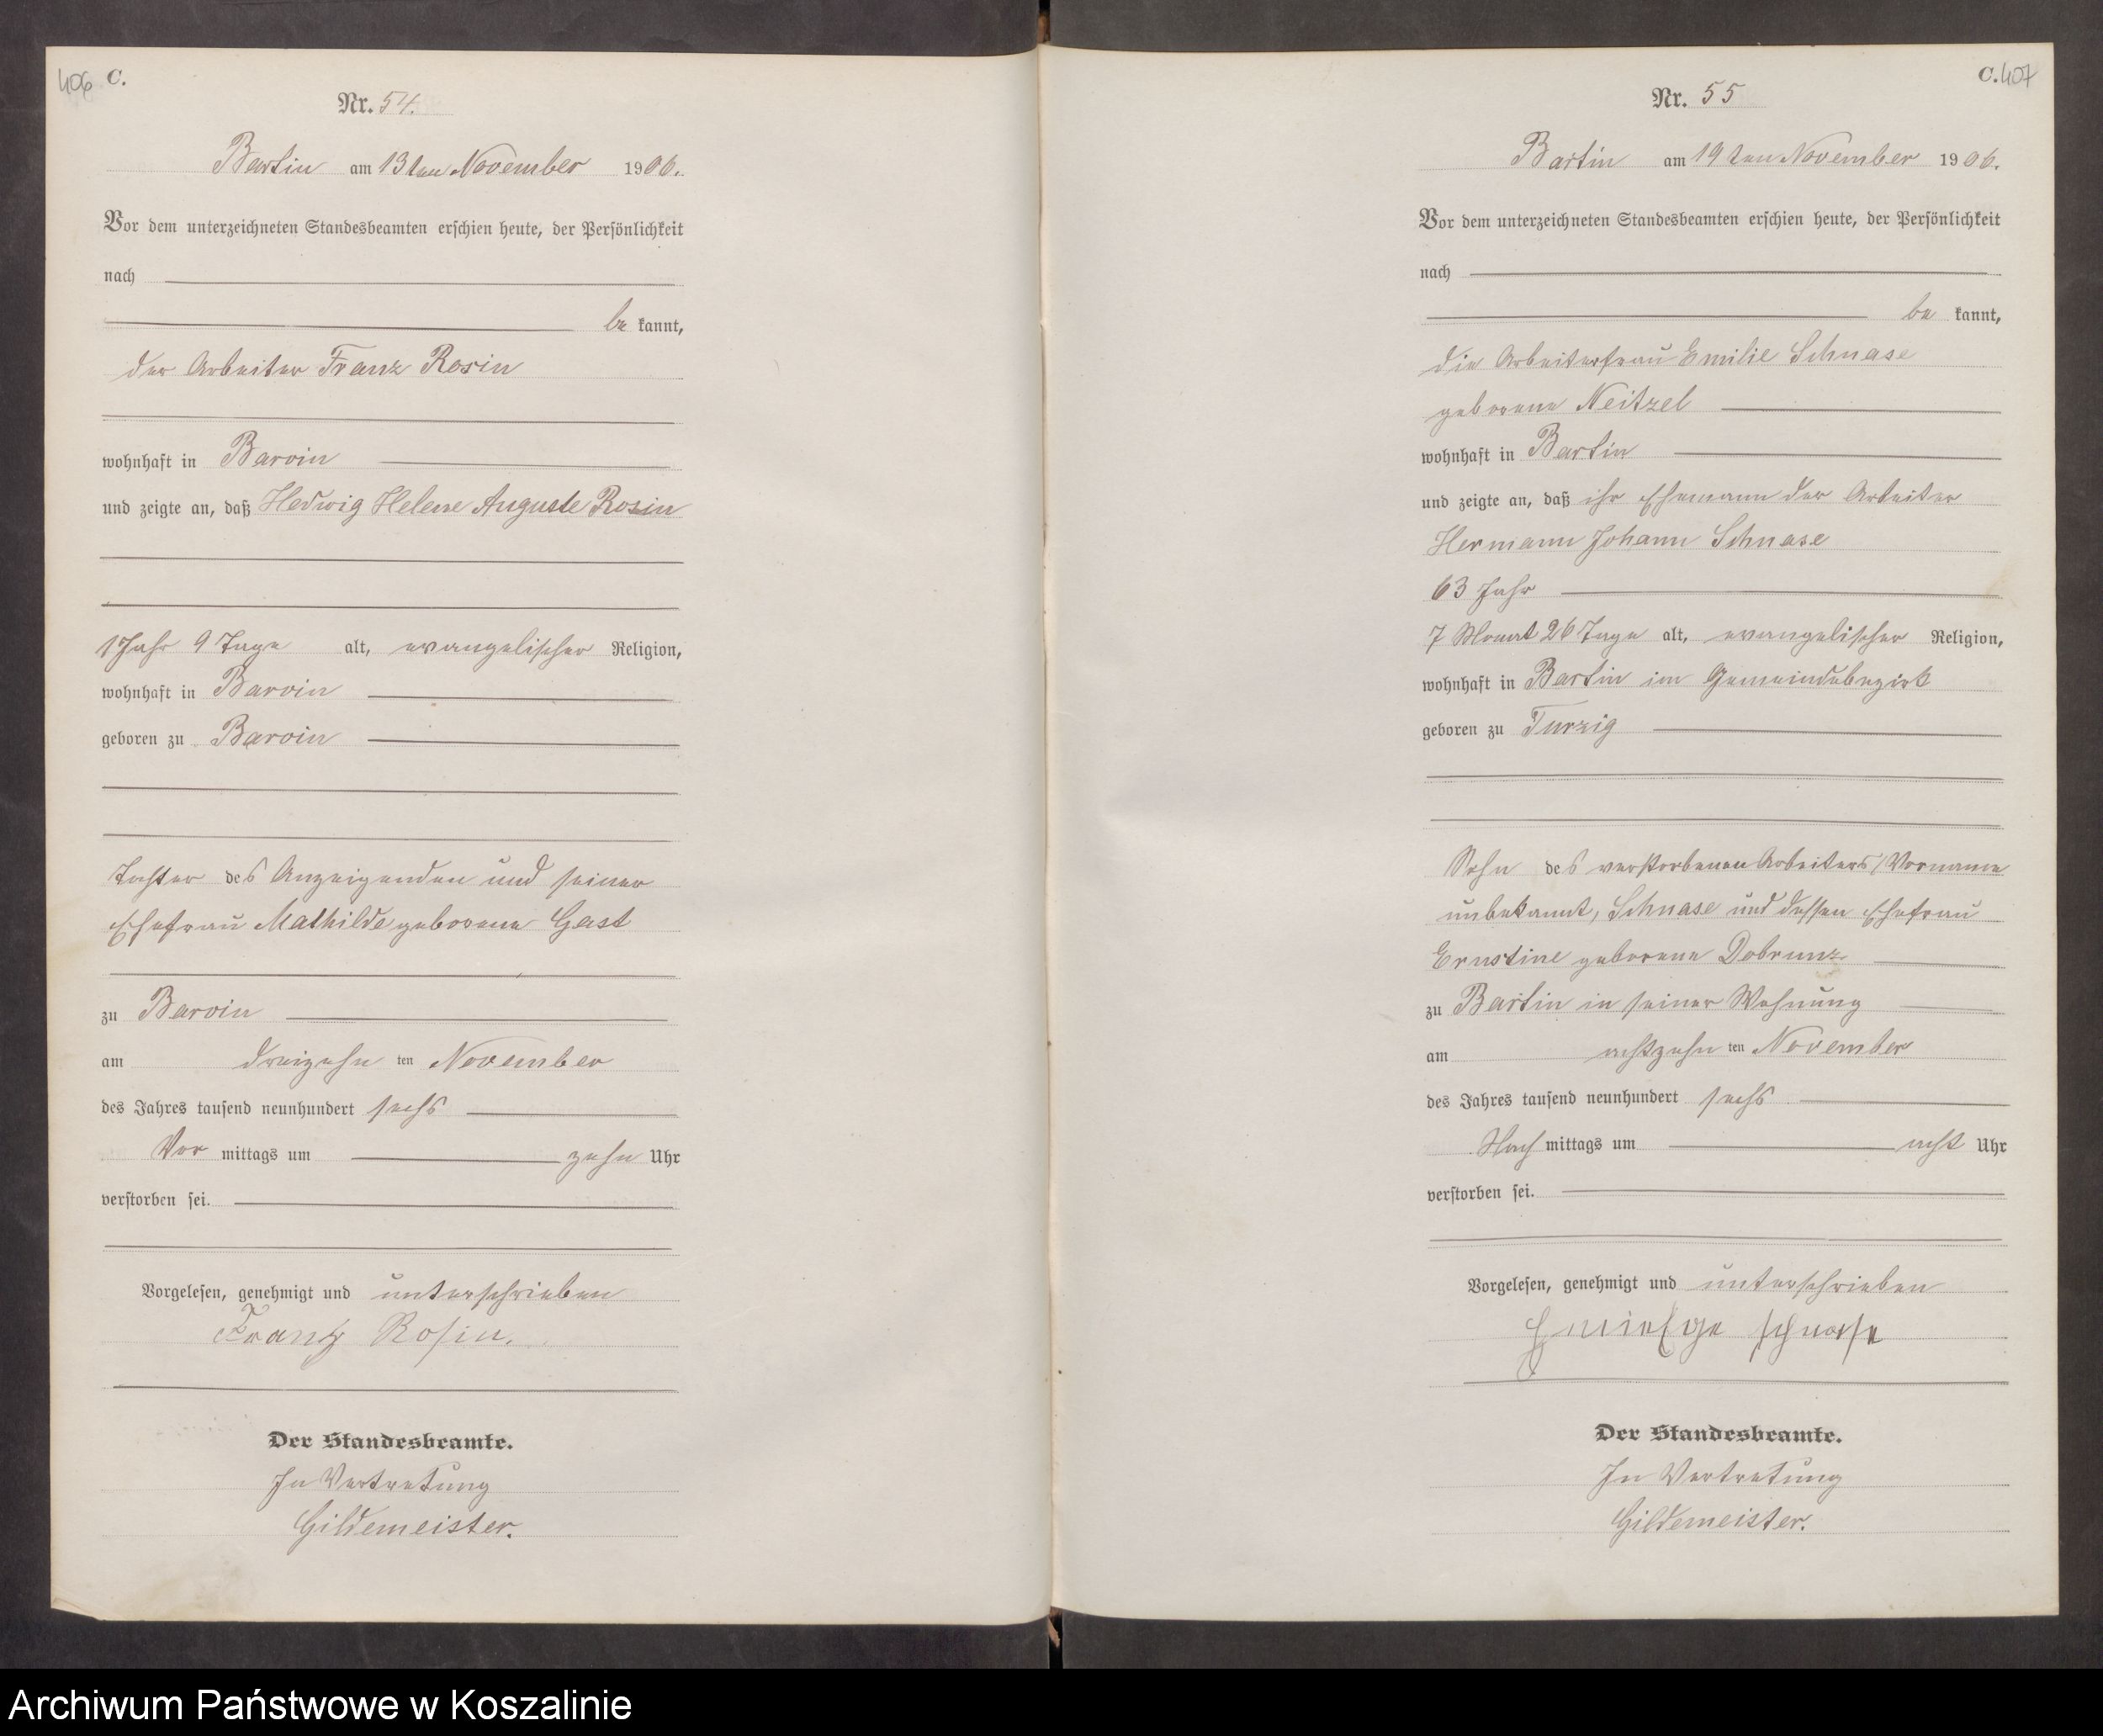 406 C.
Nr. 54.
Bartin am 13ten November 1906.
Vor dem unterzeichneten Standesbeamten erschien heute, der Persönlichkeit
nach
be kannt,
der Arbeiter Franz Rosin
wohnhaft in Barvin
und zeigte an, daß Hedwig Helene Auguste Rosin
1 Jahr 9 Tage alt, evangelischer Religion,
wohnhaft in Barvin
geboren zu Barvin
Tochter des Anzeigenden und seiner
Ehefrau Mathilde geborene Gast
zu Barvin
am dreizehn ten November
des Jahres tausend neunhundert sechs
Vor mittags um zehn Uhr
verstorben sei.
Vorgelesen, genehmigt und unterschrieben
Franz Rosin.
Der Standesbeamte.
In Vertretung
Gildemeister.
C. 407
Nr. 55
Bartin am 19ten November 1906.
Vor dem unterzeichneten Standesbeamten erschien heute, der Persönlichkeit
nach
be kannt,
die Arbeiterfrau Emilie Schnase
geborene Neitzel
wohnhaft in Bartin
und zeigte an, daß ihr Ehemann der Arbeiter
Hermann Johann Schnase
63 Jahr
7 Monat 26 Tage alt, evangelischer Religion,
wohnhaft in Bartin im Gemeindebezirk
geboren zu Turzig
Sohn des verstorbenen Arbeiters, Vorname
unbekannt, Schnase und dessen Ehefrau
Ernstine geborene Dobrunz
zu Bartin in seiner Wohnung
am achtzehn ten November
des Jahres tausend neunhundert sechs
Nach mittags um acht Uhr
verstorben sei.
Vorgelesen, genehmigt und unterschrieben
schnase
Der Standesbeamte.
In Vertretung
Gildemeister.
Archiwum Państwowe w Koszalinie